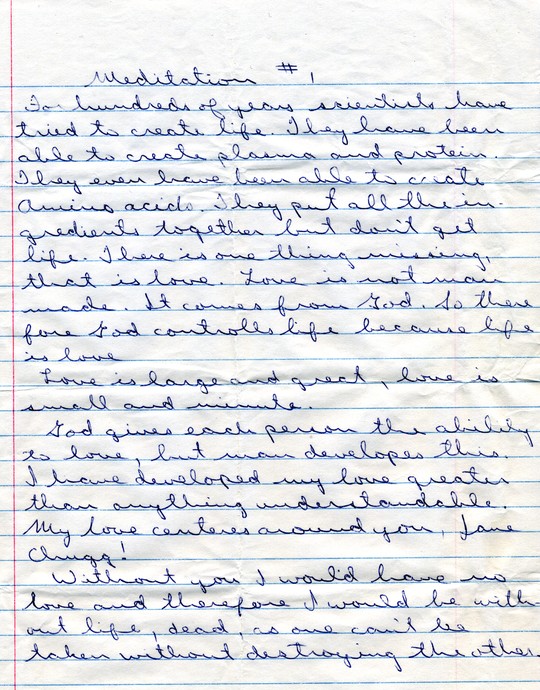 Meditation #1
For hundreds of years scientists have
tried to create life. They have been
able to create plasma and protein.
They even have been able to create
Amino acids. They put all the in-
gredients together but don't get
life. There is one thing missing,
that is love. Love is not man
made. It comes from God. So there
fore God controlls life because life
is love
Love is large and great, love is
small and minute.
God gives each person the ability
to love, but man developes this.
I have developed my love greater
than anything understandable.
My love centeres around you, Jane
Chugg!
Without you I would have no
love and therefore I would be with
out life, dead, as one can't be
taken without destroying the other.